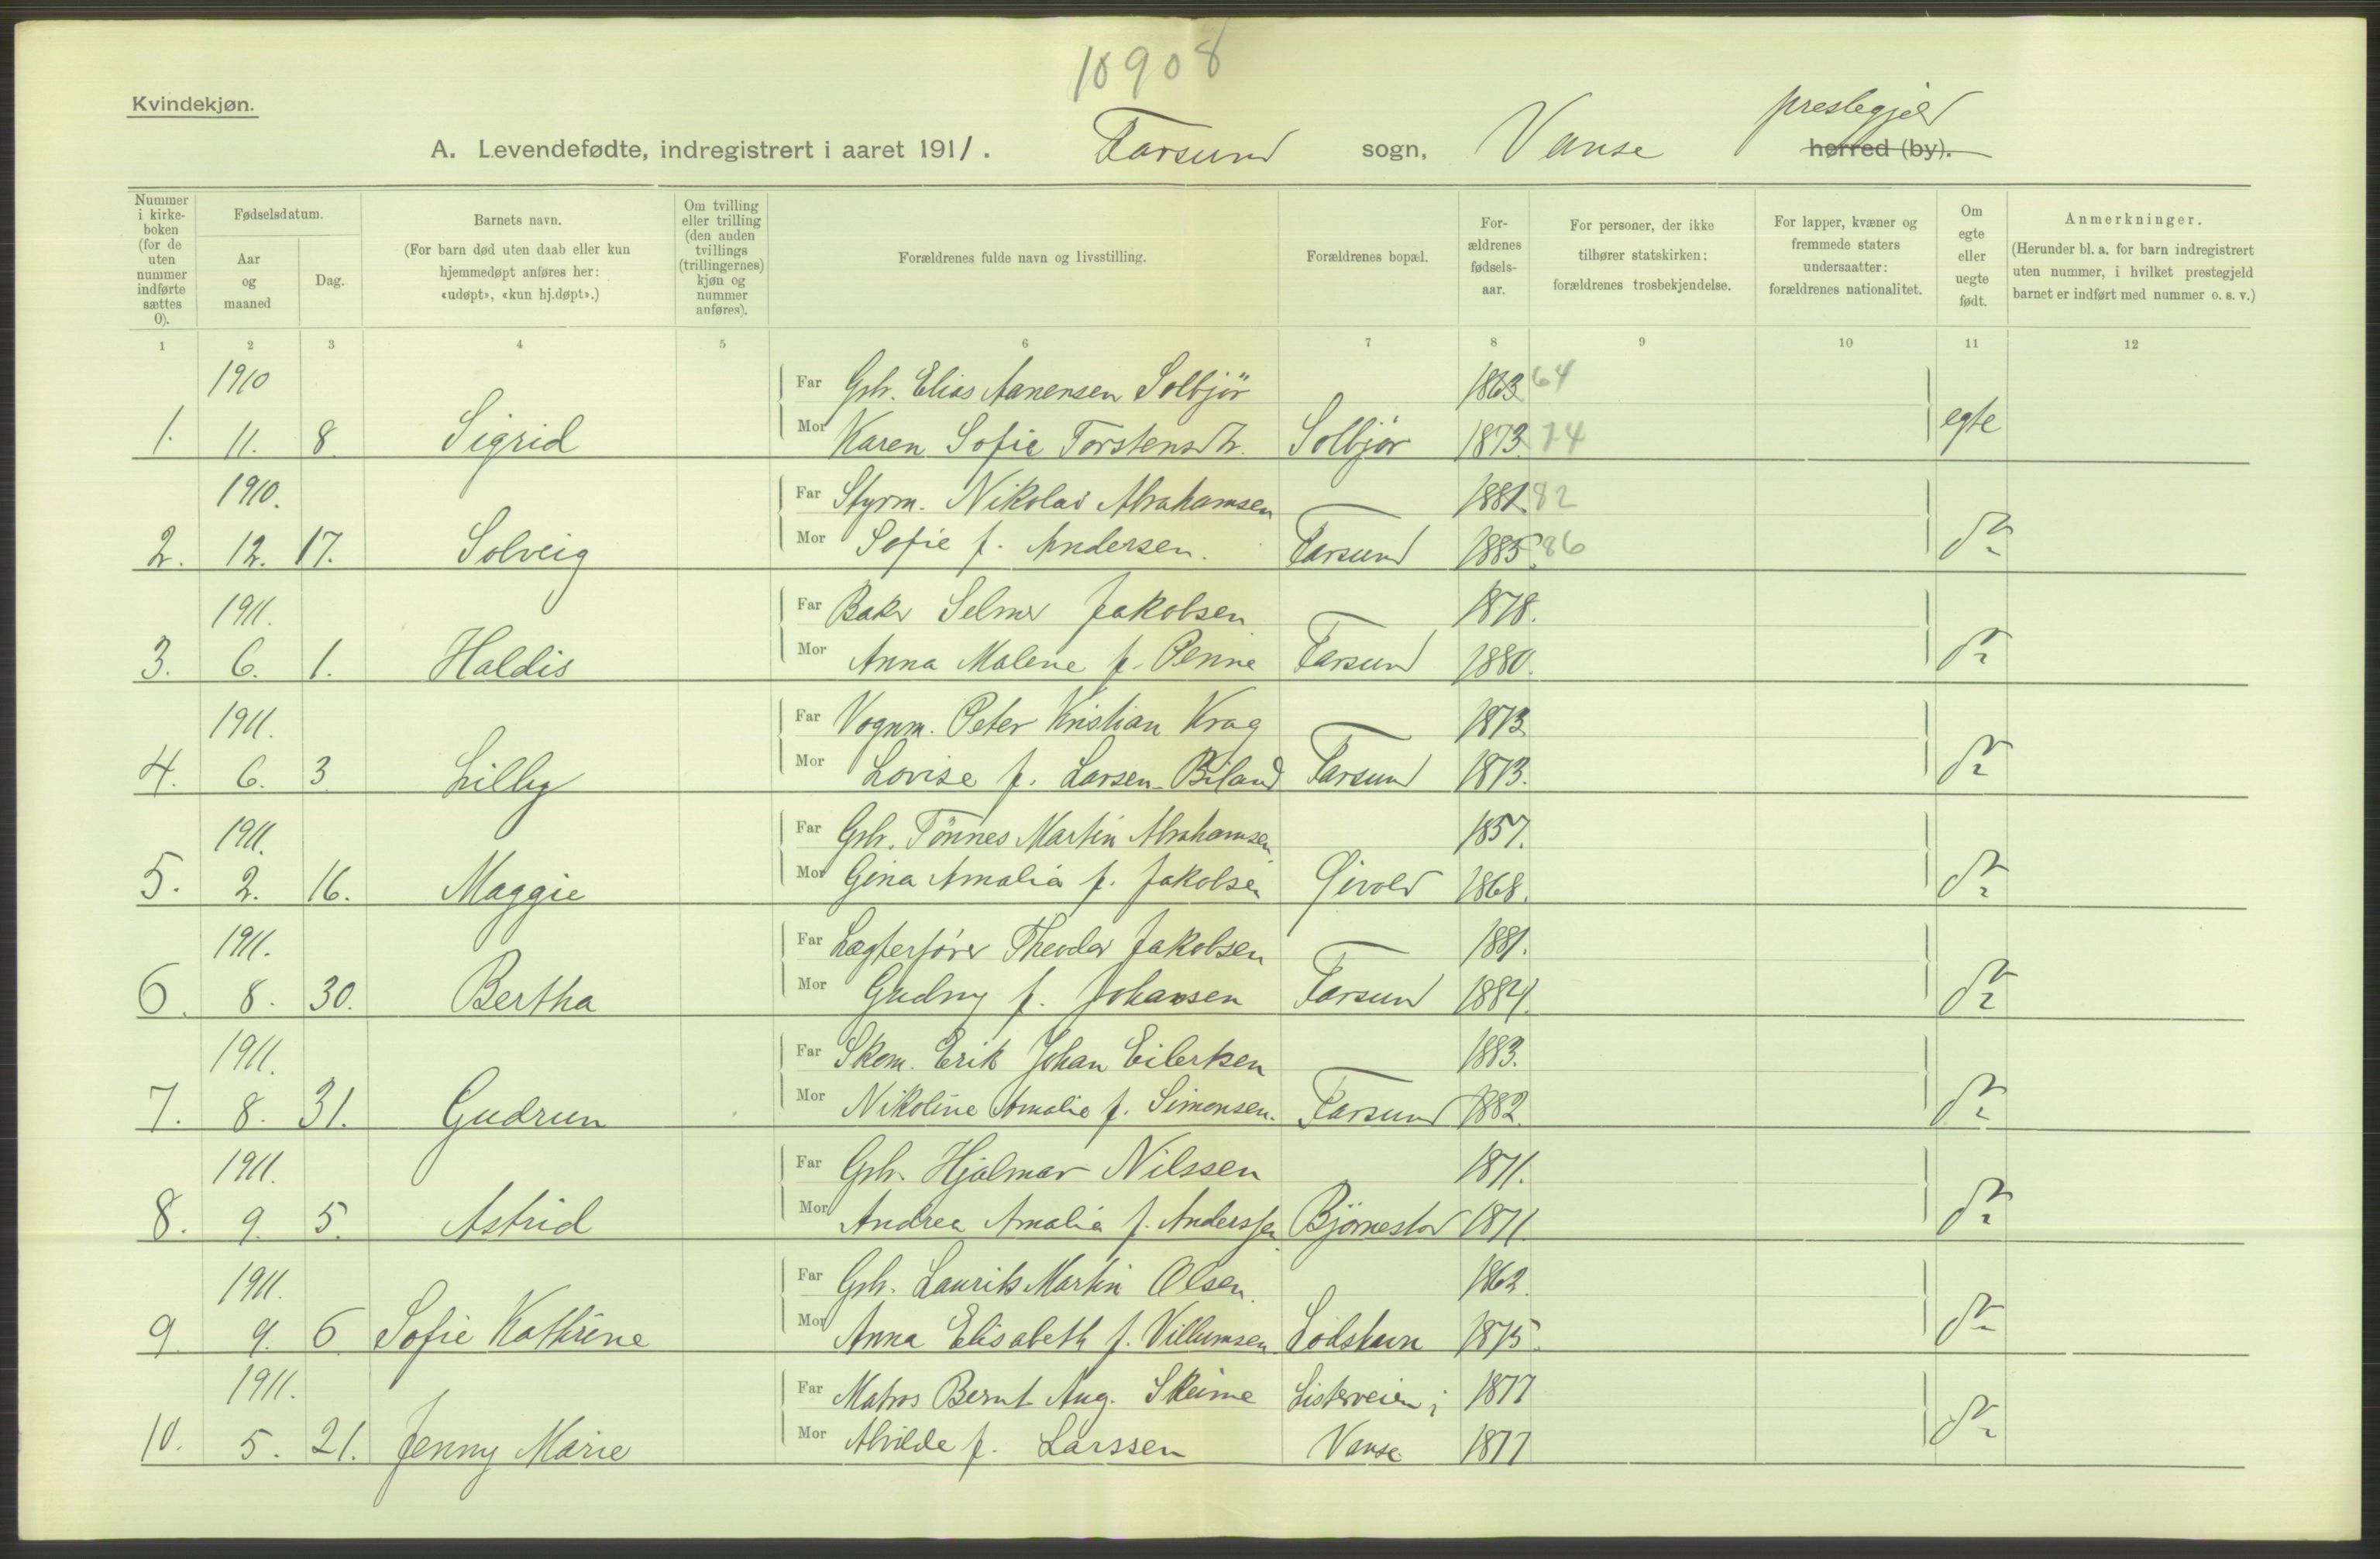 10908
Kvindekjøn.
A. Levendefødte, indregistrert i aaret 1911. Farsund sogn, Vanse prestegjeld herred (by).
Nummer i kirke-boken (for de uten nummer indførte sættes 0).
Fødselsdatum.
Aar og maaned
Dag.
Barnets navn.
(For barn død uten daab eller kun hjemmedøpt anføres her: «udøpt», «kun hj.døpt».)
Om tvilling eller trilling (den anden tvillings (trillingernes) kjøn og nummer anføres).
Forældrenes fulde navn og livsstilling.
Forældrenes bopæl.
For-ældrenes fødsels-aar.
For personer, der ikke tilhører statskirken: forældrenes trosbekjendelse.
For lapper, kvæner og fremmede staters undersaatter: forældrenes nationalitet.
Om egte eller uegte født.
Anmerkninger.
(Herunder bl. a. for barn indregistrert uten nummer, i hvilket prestegjeld barnet er indført med nummer o. s. v.)
1 2 3 4 5 6 7 8 9 10 11 12
1910 Far Gbr. Elias Aanensen Solbjör 1863 64
1. 11. 8. Sigrid Mor Karen Sofie Torstensdtr. Solbjör 1873. 74 egte
1910. Far Styrm. Nikolai Abrahamsen 1881. 82
2. 12. 17. Solveig Mor Sofie f. Andersen. Farsund 1885. 86 do
1911. Far Baker Selmer Jakobsen 1878.
3. 6. 1. Haldis Mor Anna Malene f. Penne Farsund 1880. do
1911. Far Vognm. Peter Kristian Krag 1873
4. 6. 3. Lilly Mor Lovise f. Larsen-Biland Farsund 1873. do
1911. Far Gbr. Tönnes Martin Abrahamsen 1857.
5. 2. 16. Maggie Mor Gina Amalia f. Jakobsen Givold 1868. do
1911. Far Lægterfører Theodor Jakobsen 1881.
6. 8. 30. Bertha Mor Gudny f. Johansen Farsund 1884. do
1911. Far Skom. Erik Johan Eilertsen 1883.
7. 8. 31. Gudrun Mor Nikoline Amalie f. Simonsen. Farsund 1882. do
1911. Far Gbr. Hjalmar Nilssen 1871.
8. 9. 5. Astrid Mor Andrea Amalia f. Anderssen Björnestad 1871. do
1911. Far Gbr. Laurits Martin Olsen. 1862.
9. 9. 6 Sofie Kathrine Mor Anna Elisabeth f. Villumsen Lodshavn 1875. do
1911. Far Matros Bernt Aug. Skeime Listerveien i 1877
10. 5. 21. Jenny Marie Mor Alvilde f. Larssen Vanse 1877 do